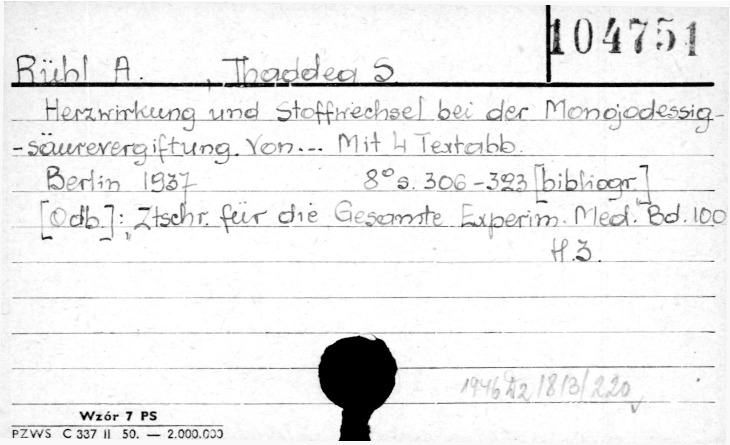 104751
Rühl A. , Thaddea S.
Herzwirkung und Stoffwechsel bei der Monojodessig-
-säurevergiftung. Von... Mit 4 Textabb.
Berlin 1937 8° s. 306-323 [bibliogr.]
[Odb.]: „Ztschr. für die Gesamte Experim. Med." Bd. 100
H.3.
1946 /1813/220
Wzór 7 PS
PZWS C 337 II 50. — 2.000.000